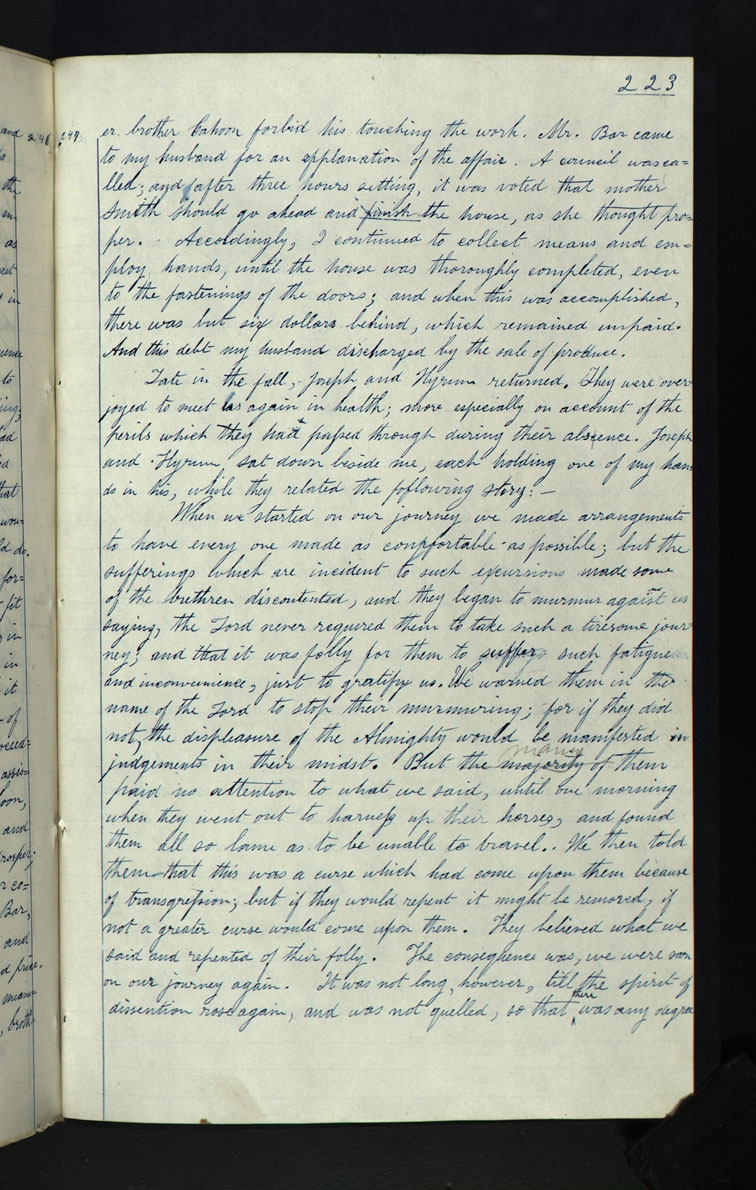 223
and 246
247.
er. brother Cahoon forbid his touching the work. Mr. Bar came
to my husband for an epplanation of the affair. A council was ca=
lled; and after three hours setting, it was voted that mother
Smith should go ahead and finish the house, as she thought pro=
per. Accordingly, I continued to collect means and em=
ploy hands, until the house was thoroughly completed, even
to the fastenings of the doors; and when this was accomplished,
there was but six dollars behind, which remained unpaid.
And this debt my husband discharged by the sale of produce.
Late in the fall, Joseph and Hyrum returned. They were over
joyed to meet us again in health; more especially on account of the
perils which they had passed through during their absence. Joseph
and Hyrum, sat down beside me, each holding one of my han=
ds in his, while they related the following story:—
When we started on our journey we made arrangements
to have every one made as comfortable as possible; but the
sufferings which are incident to such excursions made some
of the brethren discontented, and they began to murmur against us
saying, the Lord never required them to take such a tiresome jour
ney; and that it was folly for them to suffer such fatigue
and inconvenience, just to gratify us. We warned them in the
name of the Lord to stop their murmuring; for if they did
not, the displeasure of the Almighty would be manifested in
many
judgements in their midst. But the majority of them
paid no attention to what we said, until one morning
when they went out to harness up their horses, and found
them all so lame as to be unable to travel. We then told
them that this was a curse which had come upon them because
of transgression; but if they would repent it might be removed, if
not a greater curse would come upon them. They believed what we
said and repented of their folly. The consequence was, we were soon
on our journey again. It was not long, however, till the spirit of
dissention rose again, and was not quelled, so that there was any degree